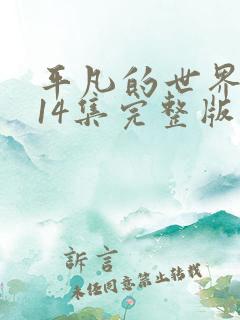 平凡的世界
14集完整版
訴言
未经同意禁止转载